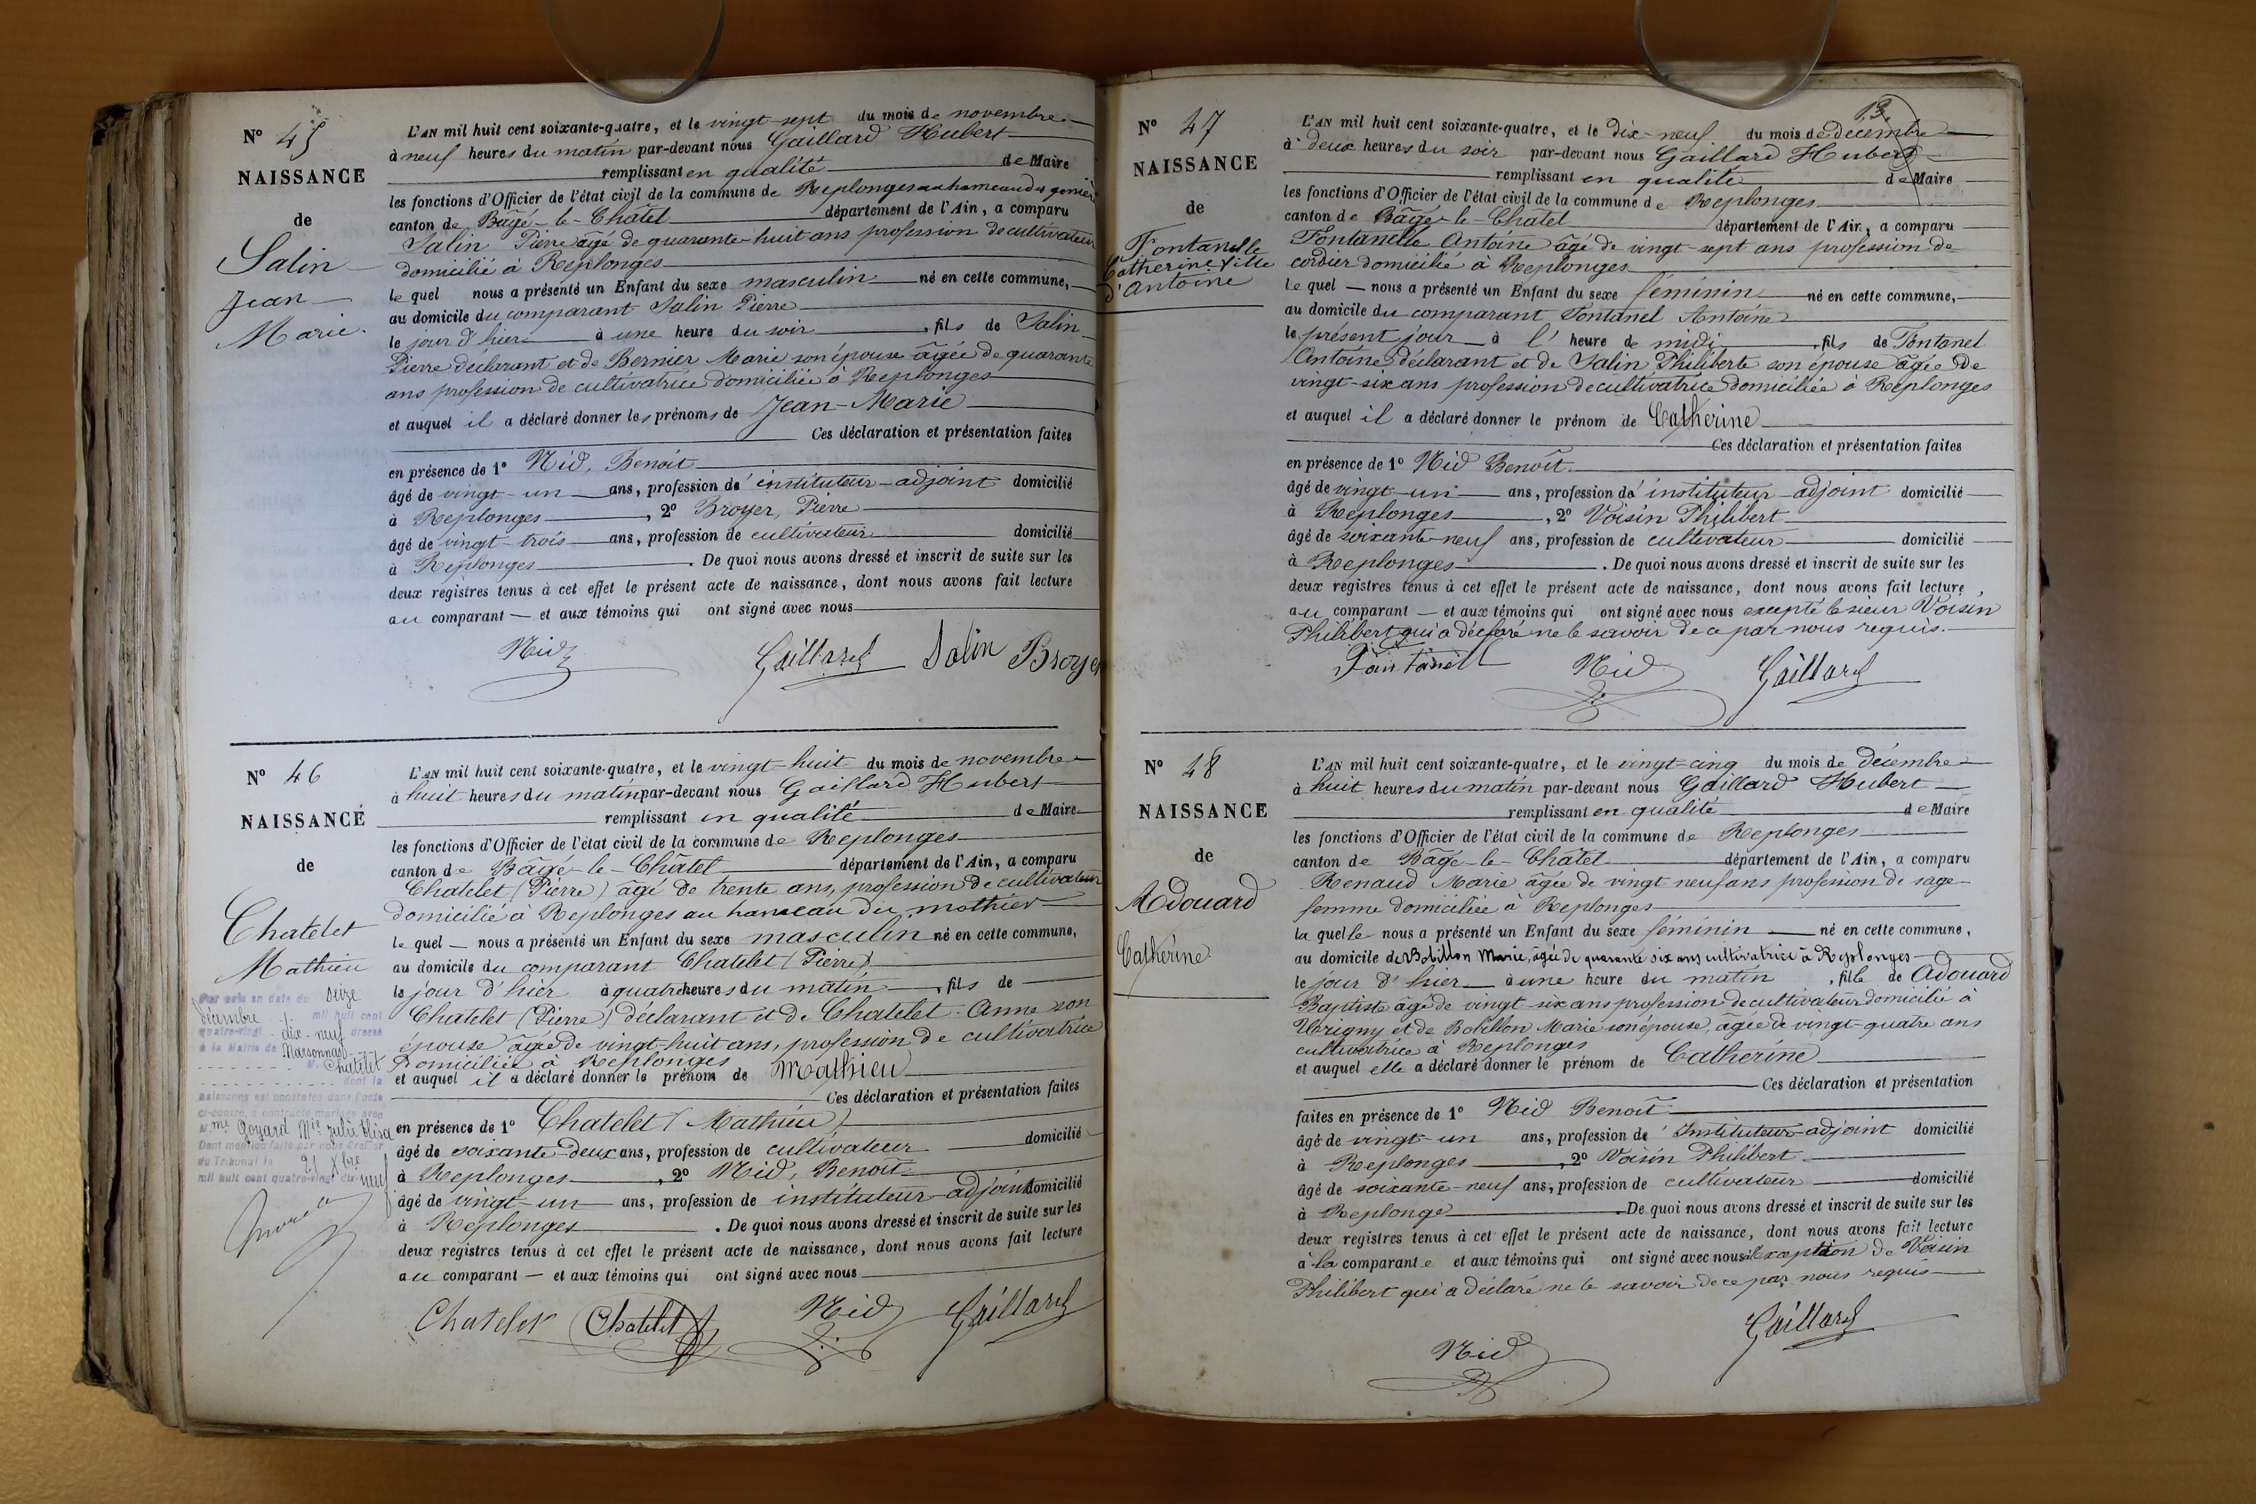 N° 45
NAISSANCE
de
Salin
Jean
Marie
L'AN mil huit cent soixante-quatre, et le vingt-sept du mois de novembre
à neuf heures du matin par-devant nous Gaillard Hubert
remplissant en qualité de Maire
les fonctions d'Officier de l'état civil de la commune de Replonges au hameau des
canton de Bâgé-le-Châtel département de l'Ain, a comparu
Salin Pierre âgé de quarante-huit ans profession de cultivateur
domicilié à Replonges
le quel nous a présenté un Enfant du sexe masculin né en cette commune,
au domicile du comparant Salin Pierre
le jour d'hier à une heure du soir, fils de Salin
Pierre déclarant et de Bernier Marie son épouse âgée de quarante
ans profession de cultivatrice domiciliée à Replonges
et auquel il a déclaré donner les prénoms de Jean-Marie
Ces déclaration et présentation faites
en présence de 1° Nid, Benoit
âgé de vingt-un ans, profession d'instituteur-adjoint domicilié
à Replonges, 2° Broyer, Pierre
âgé de vingt-trois ans, profession de cultivateur domicilié
à Replonges. De quoi nous avons dressé et inscrit de suite sur les
deux registres tenus à cet effet le présent acte de naissance, dont nous avons fait lecture
au comparant et aux témoins qui ont signé avec nous
Nid Gaillard Salin Broyer
N° 46
NAISSANCE
de
Chatelet
Mathieu
Par acte en date du seize
décembre mil huit cent
quatre-vingt-dix-neuf dressé
à la Mairie de Marsonnas
M. Chatelet
dont la
naissance est constatée dans l'acte
ci-contre, a contracté mariage avec
Mme Goyard Mie Julie Elisa
Dont mention faite par nous Greffier
du Tribunal le 21 Xbre
mil huit cent quatre-vingt-dix-neuf
L'AN mil huit cent soixante-quatre, et le vingt-huit du mois de novembre
à huit heures du matin par-devant nous Gaillard Hubert
remplissant en qualité de Maire
les fonctions d'Officier de l'état civil de la commune de Replonges
canton de Bâgé-le-Châtel département de l'Ain, a comparu
Chatelet (Pierre) âgé de trente ans, profession de cultivateur
domicilié à Replonges au hameau du mothier
le quel nous a présenté un Enfant du sexe masculin né en cette commune,
au domicile du comparant Chatelet (Pierre)
le jour d'hier à quatre heures du matin, fils de
Chatelet (Pierre) déclarant et de Chatelet Anne son
épouse âgée de vingt-huit ans, profession de cultivatrice
Domiciliée à Replonges
et auquel il a déclaré donner le prénom de Mathieu
Ces déclaration et présentation faites
en présence de 1° Chatelet (Mathieu)
âgé de soixante-deux ans, profession de cultivateur domicilié
à Replonges, 2° Nid, Benoit
âgé de vingt-un ans, profession de instituteur-adjoint domicilié
à Replonges. De quoi nous avons dressé et inscrit de suite sur les
deux registres tenus à cet effet le présent acte de naissance, dont nous avons fait lecture
au comparant et aux témoins qui ont signé avec nous
Chatelet Chatelet Nid Gaillard
13
N° 47
NAISSANCE
de
Fontanelle
Catherine fille
d'Antoine
L'AN mil huit cent soixante-quatre, et le dix-neuf du mois de décembre
à deux heures du soir par-devant nous Gaillard Hubert
remplissant en qualité de Maire
les fonctions d'Officier de l'état civil de la commune de Replonges
canton de Bâgé-le-Chatel département de l'Ain, a comparu
Fontanelle Antoine âgé de vingt-sept ans profession de
cordier domicilié à Replonges
le quel nous a présenté un Enfant du sexe féminin né en cette commune,
au domicile du comparant Fontanel Antoine
le présent jour à l'heure de midi, fils de Fontanel
Antoine déclarant et de Salin Philiberte son épouse âgée de
vingt-six ans profession de cultivatrice domiciliée à Replonges
et auquel il a déclaré donner le prénom de Catherine
Ces déclaration et présentation faites
en présence de 1° Nid Benoît
âgé de vingt-un ans, profession d'instituteur-adjoint domicilié
à Replonges, 2° Voisin Philibert
âgé de soixante-neuf ans, profession de cultivateur domicilié
à Replonges. De quoi nous avons dressé et inscrit de suite sur les
deux registres tenus à cet effet le présent acte de naissance, dont nous avons fait lecture
au comparant et aux témoins qui ont signé avec nous excepté le sieur Voisin
Philibert qui a déclaré ne le savoir de ce par nous requis.
Nid Gaillard
N° 48
NAISSANCE
de
Adouard
Catherine
L'AN mil huit cent soixante-quatre, et le vingt-cinq du mois de décembre
à huit heures du matin par-devant nous Gaillard Hubert
remplissant en qualité de Maire
les fonctions d'Officier de l'état civil de la commune de Replonges
canton de Bâgé-le-Châtel département de l'Ain, a comparu
Renaud Marie âgée de vingt neuf ans profession de sage-
femme domiciliée à Replonges
la quelle nous a présenté un Enfant du sexe féminin né en cette commune,
au domicile de Botillon Marie, âgée de quarante six ans cultivatrice à Replonges
le jour d'hier à une heure du matin, fille de Adouard
Baptiste âgé de vingt-six ans profession de cultivateur domicilié à
et de Botillon Marie son épouse, âgée de vingt-quatre ans
cultivatrice à Replonges
et auquel elle a déclaré donner le prénom de Catherine
Ces déclaration et présentation
faites en présence de 1° Nid Benoît
âgé de vingt-un ans, profession d'Instituteur-adjoint domicilié
à Replonges, 2° Voisin Philibert
âgé de soixante-neuf ans, profession de cultivateur domicilié
à Replonge. De quoi nous avons dressé et inscrit de suite sur les
deux registres tenus à cet effet le présent acte de naissance, dont nous avons fait lecture
à la comparante et aux témoins qui ont signé avec nous à l'exception de Voisin
Philibert qui a déclaré ne le savoir de ce par nous requis
Nid Gaillard